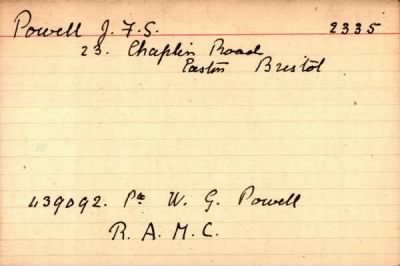 Powell J. F. S. 2335
23. Chaplin Road
Easton Bristol
439092. Pte W. G. Powell
R. A. M. C.